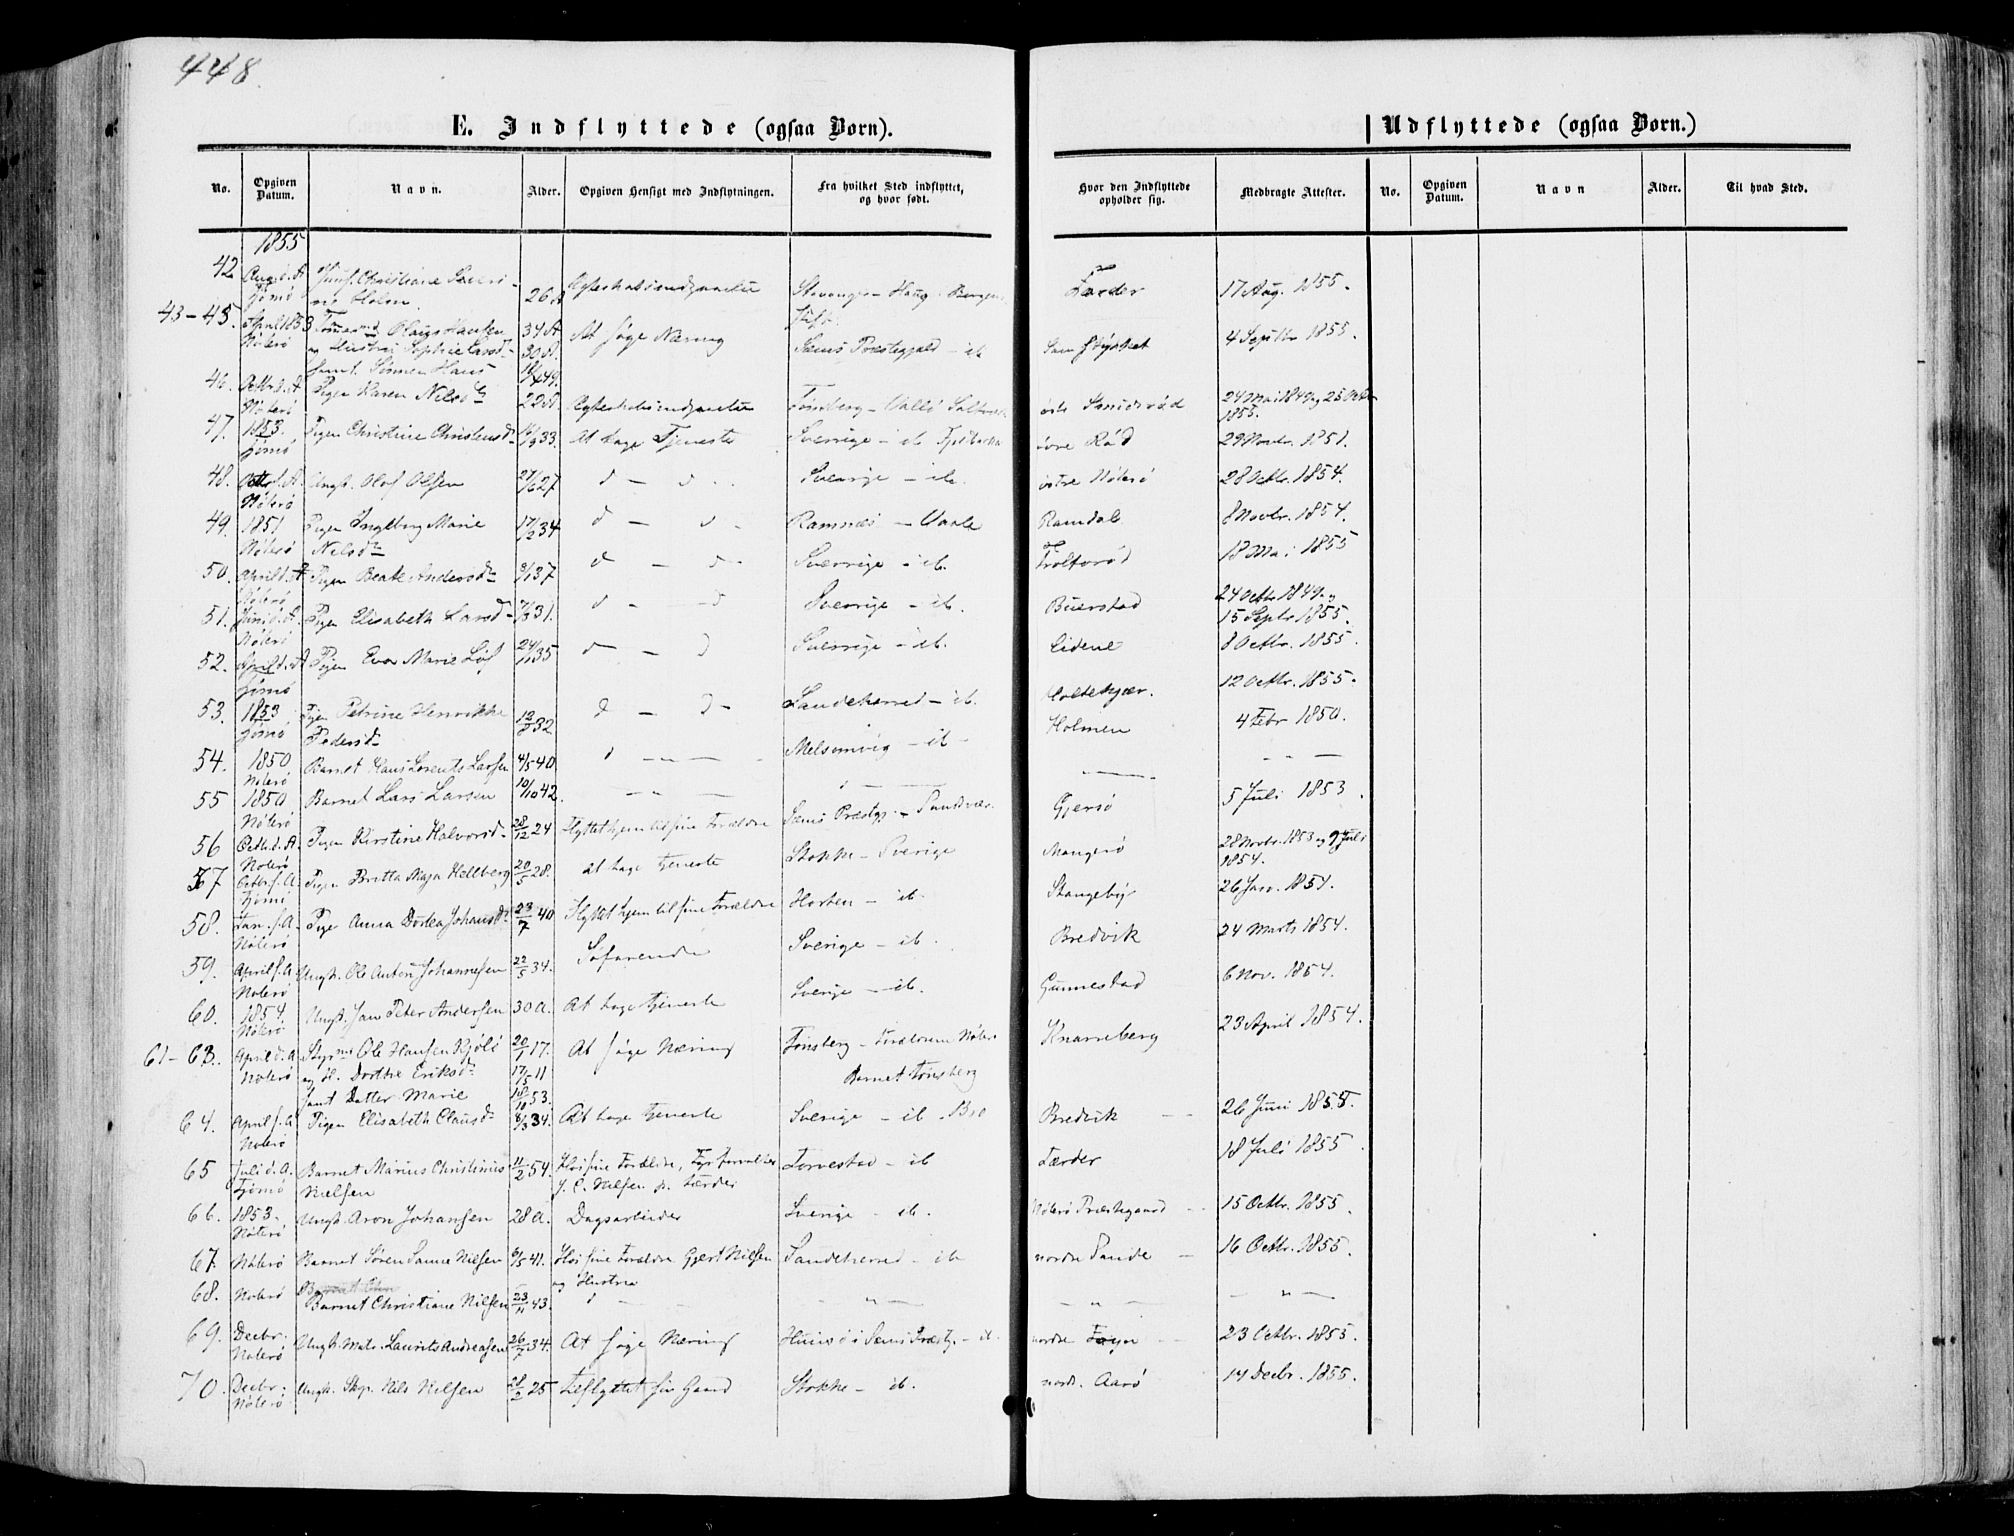 448.
E. Indflyttede (ogsaa Børn).
Udflyttede (ogsaa Børn.)
No. Opgiven Datum. Navn. Alder. Opgiven Hensigt med Indflytningen. Fra hvilket Sted indflyttet, og hvor født. Hvor den Indflyttede opholder sig. Medbragte Attester. No. Opgiven Datum. Navn Alder. Til hvad Sted.
1855
42 Aug. d. A Tjømø Jomf. Christiane Holm 26 A Stavanger – Haug Bergens Stift Færder 17 Aug. 1855.
43–45. April 1853 Nøterø Olaus Hansen og Hustru Sophie Larsd. samt Sønnen Hans 34 A 30 A. 49. At søge Næring Sems Præstegjeld – ib 4 Septbr 1855.
46. Octbr. d. A Nøterø Pigen Karen Nilsd. 22 A. Tønsberg – Vallø Saltværk 24 Mai 1849 og 25 Octbr 1855.
47. 1853 Tjømø Pigen Christine Christensd. 33. At tage Tjeneste Sverrige – ib øvre Rød 29 Novbr. 1851.
48. Octbr. d. A. Nøterø Ungk. Olof Olsen 27/6 27 d – d Sverrige – ib. østre Nøterø 28 Octbr. 1854.
49. 1851 Nøterø Pigen Ingeborg Marie Nilsd. 17/2 34 d – d – Ramnæs – Vaale Ramdal 8 Novbr. 1854.
50. April d. A Nøterø Pigen Beate Andersd. 37 d – d – Sverrige – ib. Trolsrød 18 Mai 1855
51. Juni d. A. Nøterø Pigen Elisabeth Larsd. 31. d – d Sverrige – ib. Buerstad 24 Octbr 1849 og 15 Septbr 1855.
52. April d. A Tjømø Pigen Eva Marie Løf 24/11 35 d – d Sverrige – ib. Eidene 8 Octbr. 1855.
53. 1853 Tjømø Pigen Petrine Henrikke Pedersd. 12/ 32 d – d – Sandeherred – ib. Holtekjær. 12 Octbr. 1855.
54. 1850 Nøterø Barnet Hans Lorents Larsen 4/5 40 d – Melsomvig – ib – Holmen 4 Febr 1850.
55 1850 Nøterø Barnet Lars Larsen 10/10 42. – „ –
56 Octb. d. A. Nøterø Pigen Kirstine Halvorsd. 28/12 24 Flyttet hjem til sine Forældre Sems Præstgj. – Gjersø 5 Juli 1853.
57 Octbr. f. A. Tjømø Pigen Britta Maja Hellberg 20/5 28. at tage tjeneste Stokke – Sverige Mangerø 28 Novbr. 1853 og 9 Juli 1854.
58. Jan. f. A. Nøterø Pige Anna Dorlea Johansd. 23/7 40 Flyttet hjem til sine Forældre Horten – ib. Stangeby 26 Jan. 1854.
59. April f. A Nøterø Ungk. Ole Anton Johannesen 22/5 34. Søfarende Sverige – ib. Bredvik 24 Marts 1854.
60. 1854. Nøterø Ungk. Jan Peter Andersen 30 a. At tage tjeneste Sverige – ib. Gunnestad 6 Nov. 1854.
61–63. April d. A Nøterø Styrm. Ole Hansen Kjølø og H. Dorthe Eriksd. samt Datter Marie 20/1 17. 17/5 11 18/10 53. At søge Næring Tønsberg – Forældrene Nøterø Barnet Tønsberg Knarreberg 23 April 1854.
64. April f. A Nøterø Pigen Elisabeth Clausd. 6/3 34. At tage tjeneste Sverige – ib. Bro Bredvik 26 Juni 1855.
65 Juli d. A. Tjømø Barnet Marius Christinius Nielsen 11/2 54. Hos sine Forældre, Fyrforvalter J. C. Nielsen p. Færder Torvestad – ib Færder 18 Juli 1855
66. 1853. Nøterø Ungk. Aron Johansen 28 a. Dagsarbeider Sverige – ib. Nøterø Præstegaard 15 Octbr. 1855.
67. Nøterø Barnet Søren Sanne Nielsen 6/5 41. Hos sine Forældre Gjert Nielsen og Hustru Sandeherred – ib nordre Sande 16 Octbr. 1855.
68. Nøterø Barnet Christiane Nielsen 23/11 43. d – – „ – – „ – – „ –
69. Decbr. Nøterø Ungk. Matr. Laurits Andreasen 26/7 34. At søge Næring Husø i Sems Præstgj. – ib. nordre Føyn 23 Octbr. 1855.
70. Decbr. Nøterø Ungk. Skp. Nils Nilsen 28/2 25 Tilflyttet sin Gaard Stokke – ib. nordr. Aarø 14 Decbr. 1855.